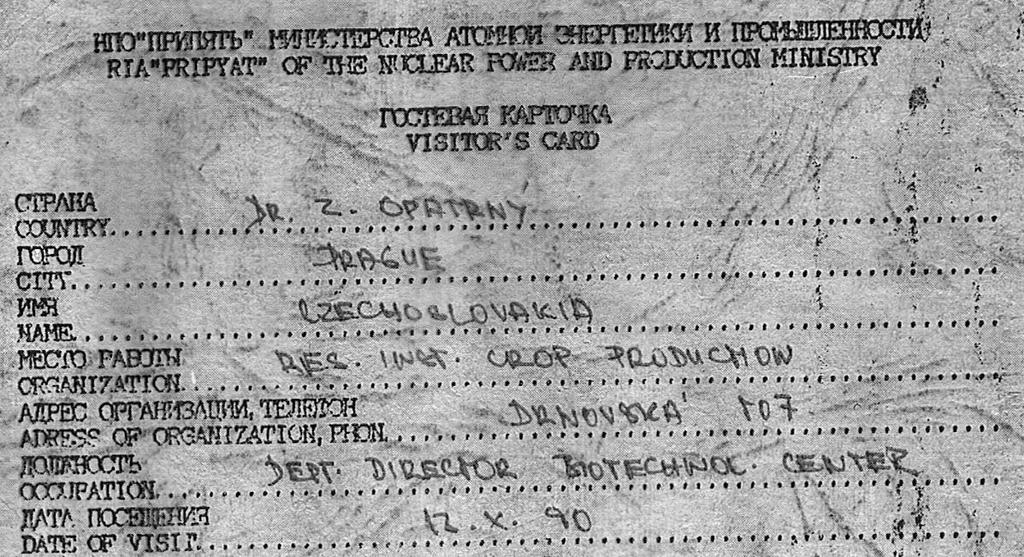 НПО"ПРИПЯТЬ" МИНИСТЕРСТВА АТОМНОЙ ЭНЕРГЕТИКИ И ПРОМЫШЛЕННОСТИ
RIA"PRIPYAT" OF THE NUCLEAR POWER AND PRODUCTION MINISTRY
ГОСТЕВАЯ КАРТОЧКА
VISITOR'S CARD
СТРАНА
COUNTRY DR. Z. OPATRNÝ
ГОРОД
CITY PRAGUE
ИМЯ
NAME CZECHOSLOVAKIA
МЕСТО РАБОТЫ
ORGANIZATION RES. INST. CROP PRODUCTION
АДРЕС ОРГАНИЗАЦИИ, ТЕЛЕФОН
ADRESS OF ORGANIZATION, PHON. DRNOVSKÁ 507
ДОЛЖНОСТЬ
OCCUPATION DEPT. DIRECTOR BIOTECHNOL. CENTER
ДАТА ПОСЕЩЕНИЯ
DATE OF VISIT 12. X. 90